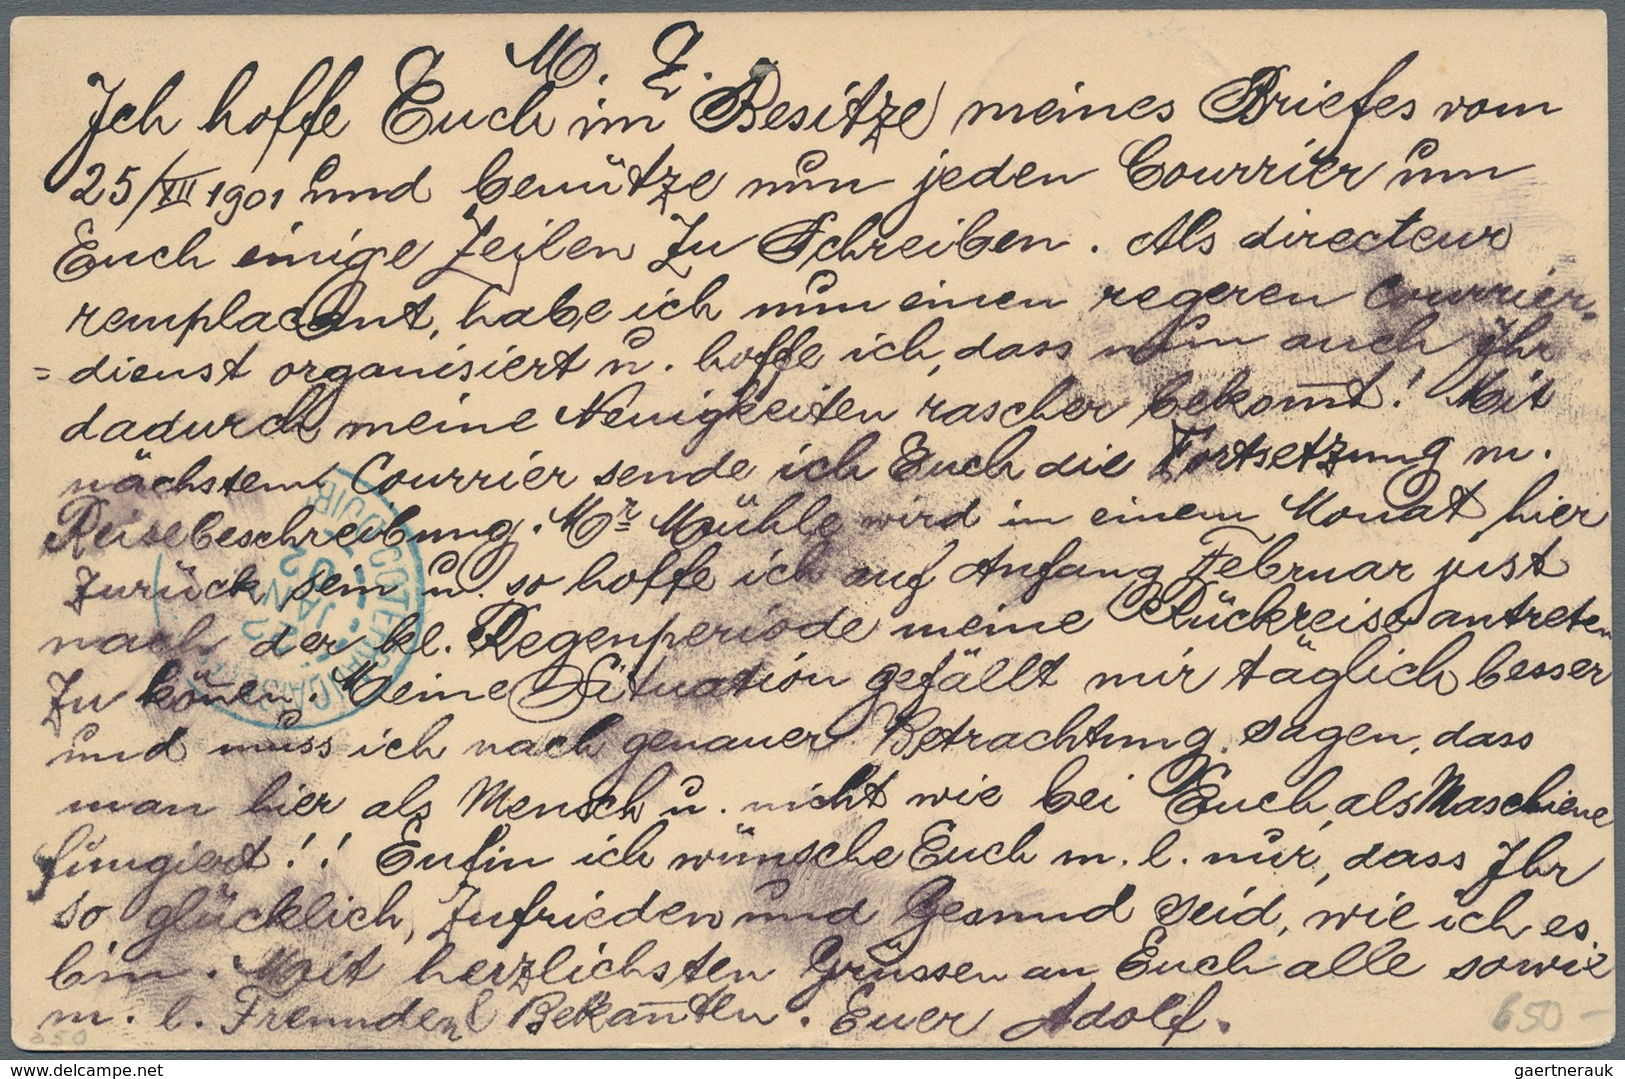 M. L.
Ich hoffe Euch im Besitze meines Briefes vom
25/XII 1901 und benütze nun jeden Courrier um
Euch einige Zeilen zu Schreiben. Als directeur
remplacant, habe ich nun einen regeren Courrier-
=dienst organisiert u. hoffe ich, dass nun auch Ihr
dadurch meine Neuigkeiten rascher bekom̅t! Mit
nächstem Courrier sende ich Euch die Fortsetzung m.
Reisebeschreibung. Mr Mühle wird in einem Monat hier
zurück sein u. so hoffe ich auf Anfang Februar just
nach der kl. Regenperiode meine Rückreise antreten
zu kön̅en. Meine Situation gefällt mir täglich besser
und muss ich nach genauer Betrachtung sagen, dass
man hier als Mensch u. nicht wie bei Euch, als Maschiene
fungiert!! Enfin ich wünsche Euch m. l. nur, dass Ihr
so glücklich, zufrieden und Gesund seid, wie ich es
bin. Mit herzlichsten Grüssen an Euch alle sowie
m. l. Freunden & Bekan̅ten. Euer Adolf.
650 -
350
COTE
JANV
02
gaertnerauk